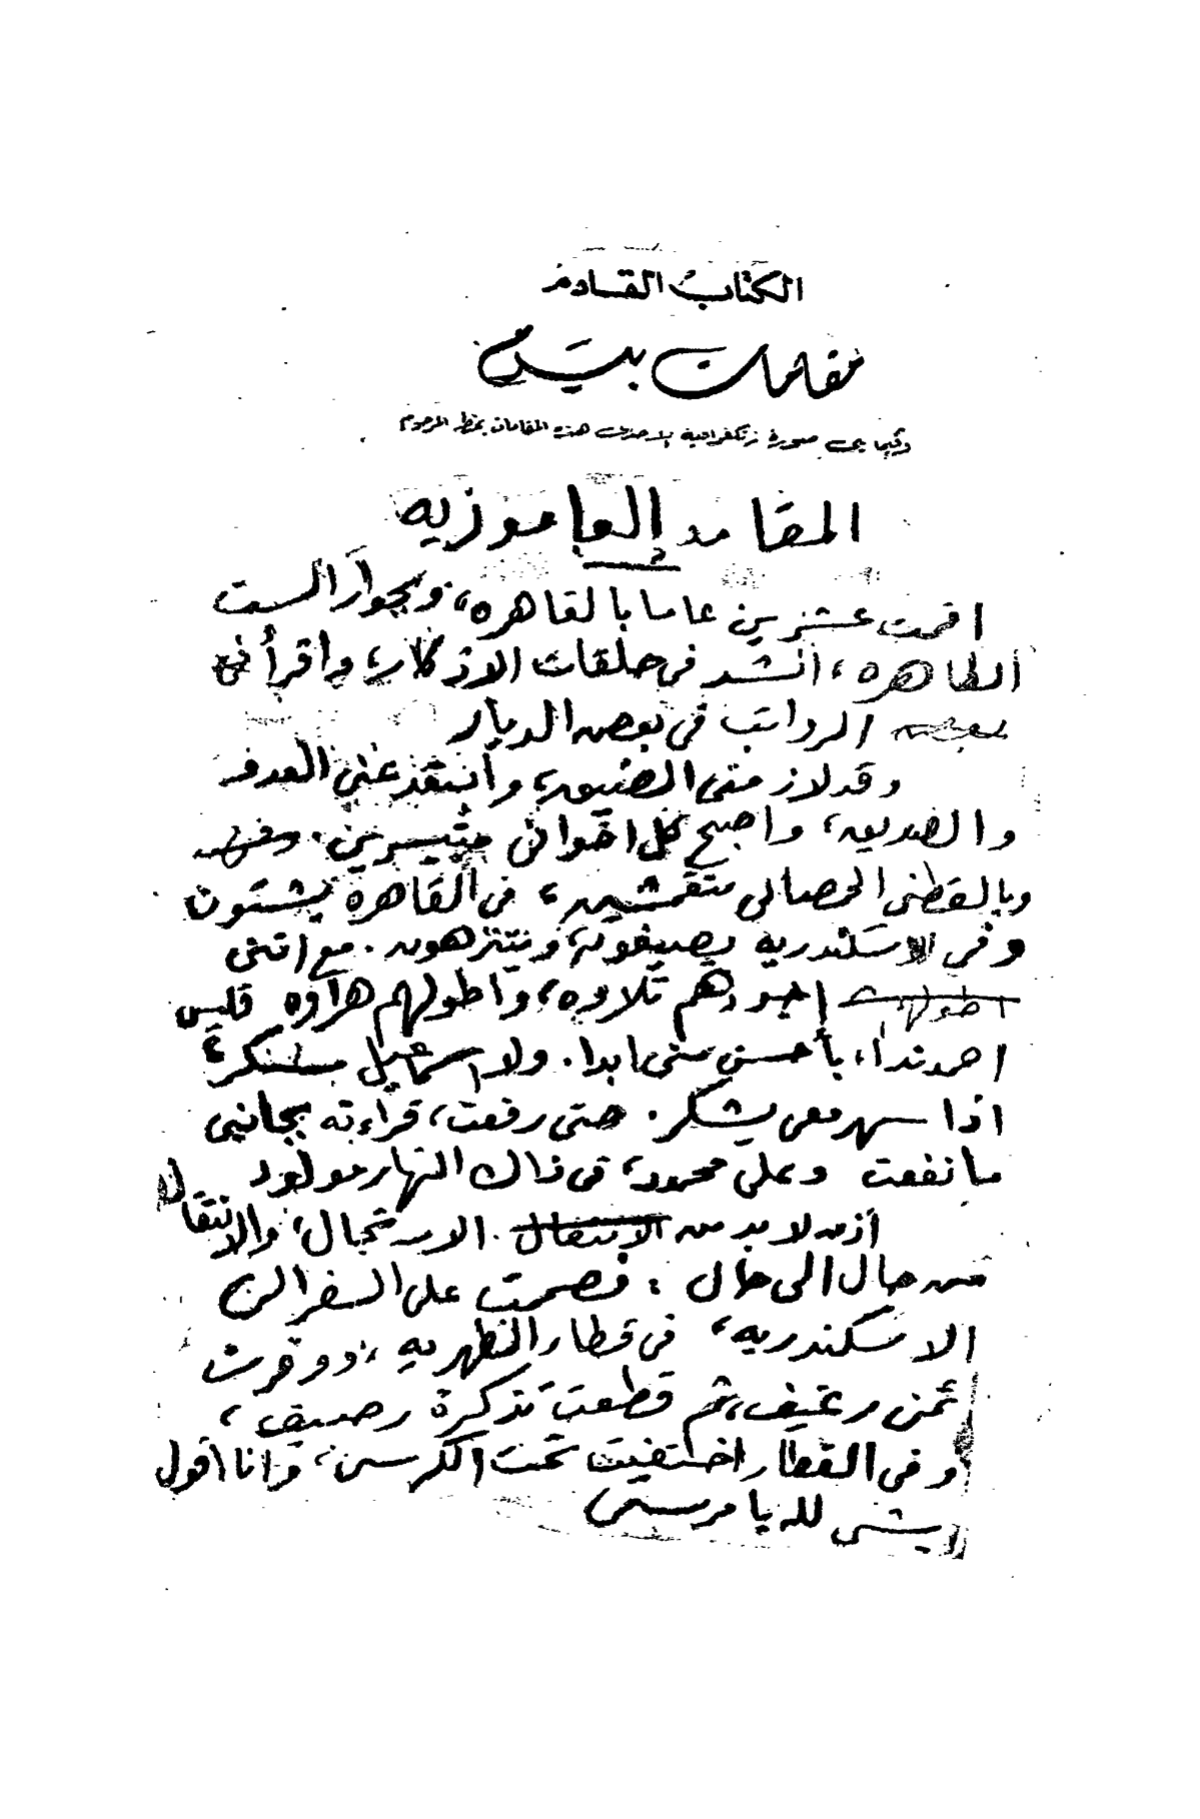 الكتاب القادم
مقامات بيرم
وفيما يلى صورة زنكغرافية لاحدى هذه المقامات بخط المرحوم
المقامه العاموزيه
اقمت عشرين عاما بالقاهره، وبجوار الست
الطاهره، انشد فى حلقات الاذكار، واقرأ
الرواتب فى بعض الديار
وقد لازمنى الضيق، وانتقد عنى العدو
والصديق، واصبح كل اخوانى متيسرين.
وبالقطنى الحمصانى متقمشين، فى القاهرة يشتون
وفى الاسكندريه يصيفون، ويتنزهون. مع اننى
اطولهم اجودهم تلاوه، واطولهم هراوه فليس
احمد ندا، بأحسن منى ابدا. ولا اسماعيل سكر،
اذا سهر معى يشكر. حتى رفعت، قراءته بجانبى
ما نفعت وعلى محمود، فى ذاك النهار مولود
أذن لابد من الانتقال الارتجال، والانتقال
من حال الى حال، فصممت على السفر الى
الاسكندريه، فى قطار الظهريه، ووفرت
ثمن رغيف، ثم قطعت تذكرة رصيف،
وفى القطار اختفيت تحت الكرسى، وانا اقول
شى لله يا مرسى